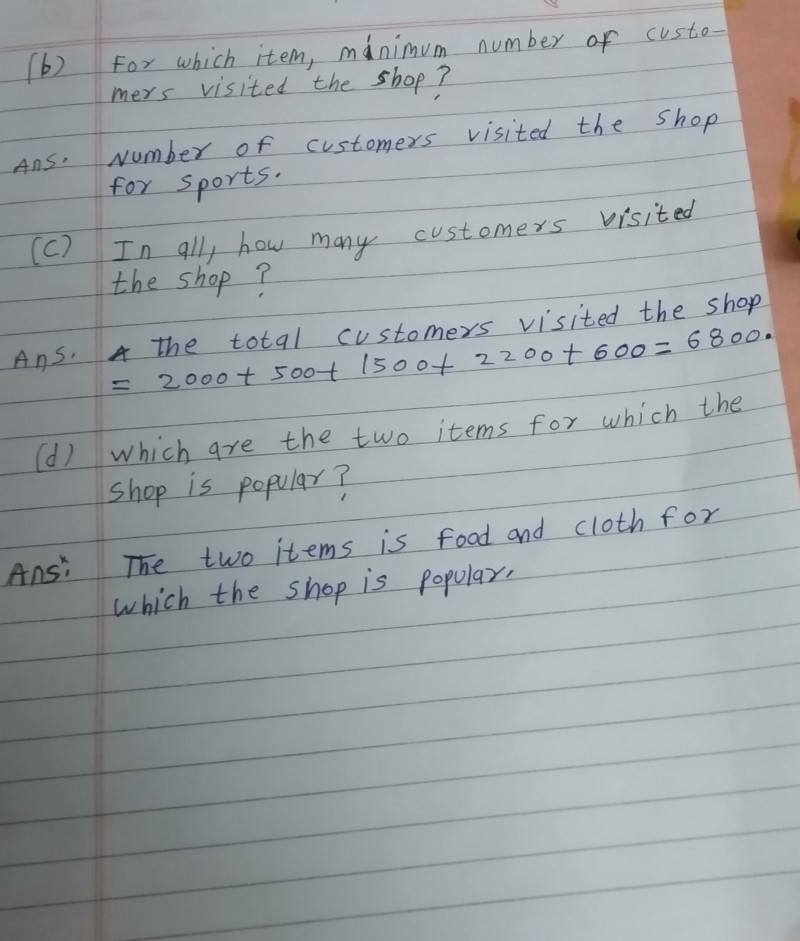 (b) For which item, minimum number of custo-
mers visited the shop?
Ans. Number of customers visited the shop
for sports.
(c) In all, how many customers visited
the shop ?
Ans. The total customers visited the shop
= 2000+ 500+ 1500+ 2200+ 600 = 6800.
(d) which are the two items for which the
shop is popular?
Ans: The two items is food and cloth for
which the shop is popular.